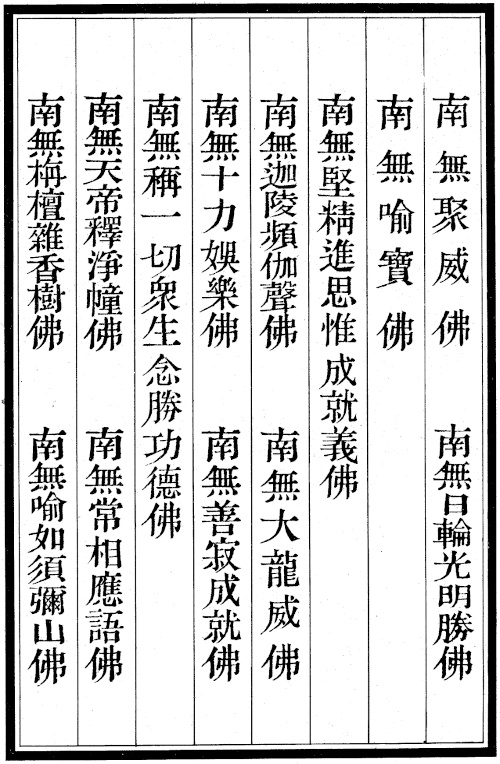 南無聚威佛　南無日輪光明勝佛
南無喻寶佛
南無堅精進思惟成就義佛
南無迦陵頻伽聲佛　南無大龍威佛
南無十力娛樂佛　南無善寂成就佛
南無稱一切衆生念勝功德佛
南無天帝釋淨幢佛　南無常相應語佛
南無栴檀雜香樹佛　南無喻如須彌山佛